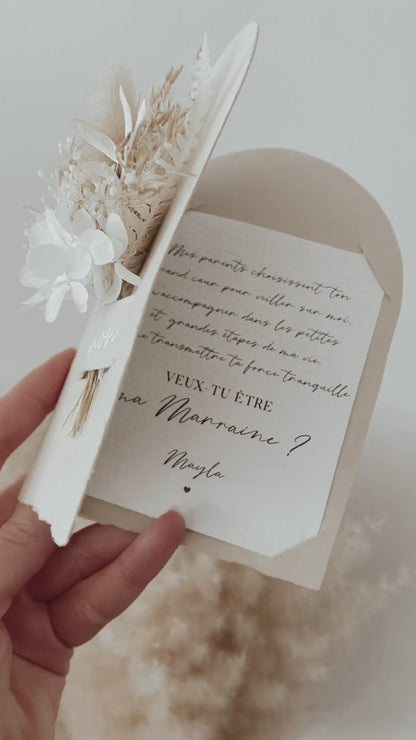 Mes parents choisissent ton
cœur pour veiller sur moi,
accompagner dans les petites
et grandes étapes de ma vie,
transmettre ta force tranquille
VEUX-TU ÊTRE
ma Marraine ?
Mayla